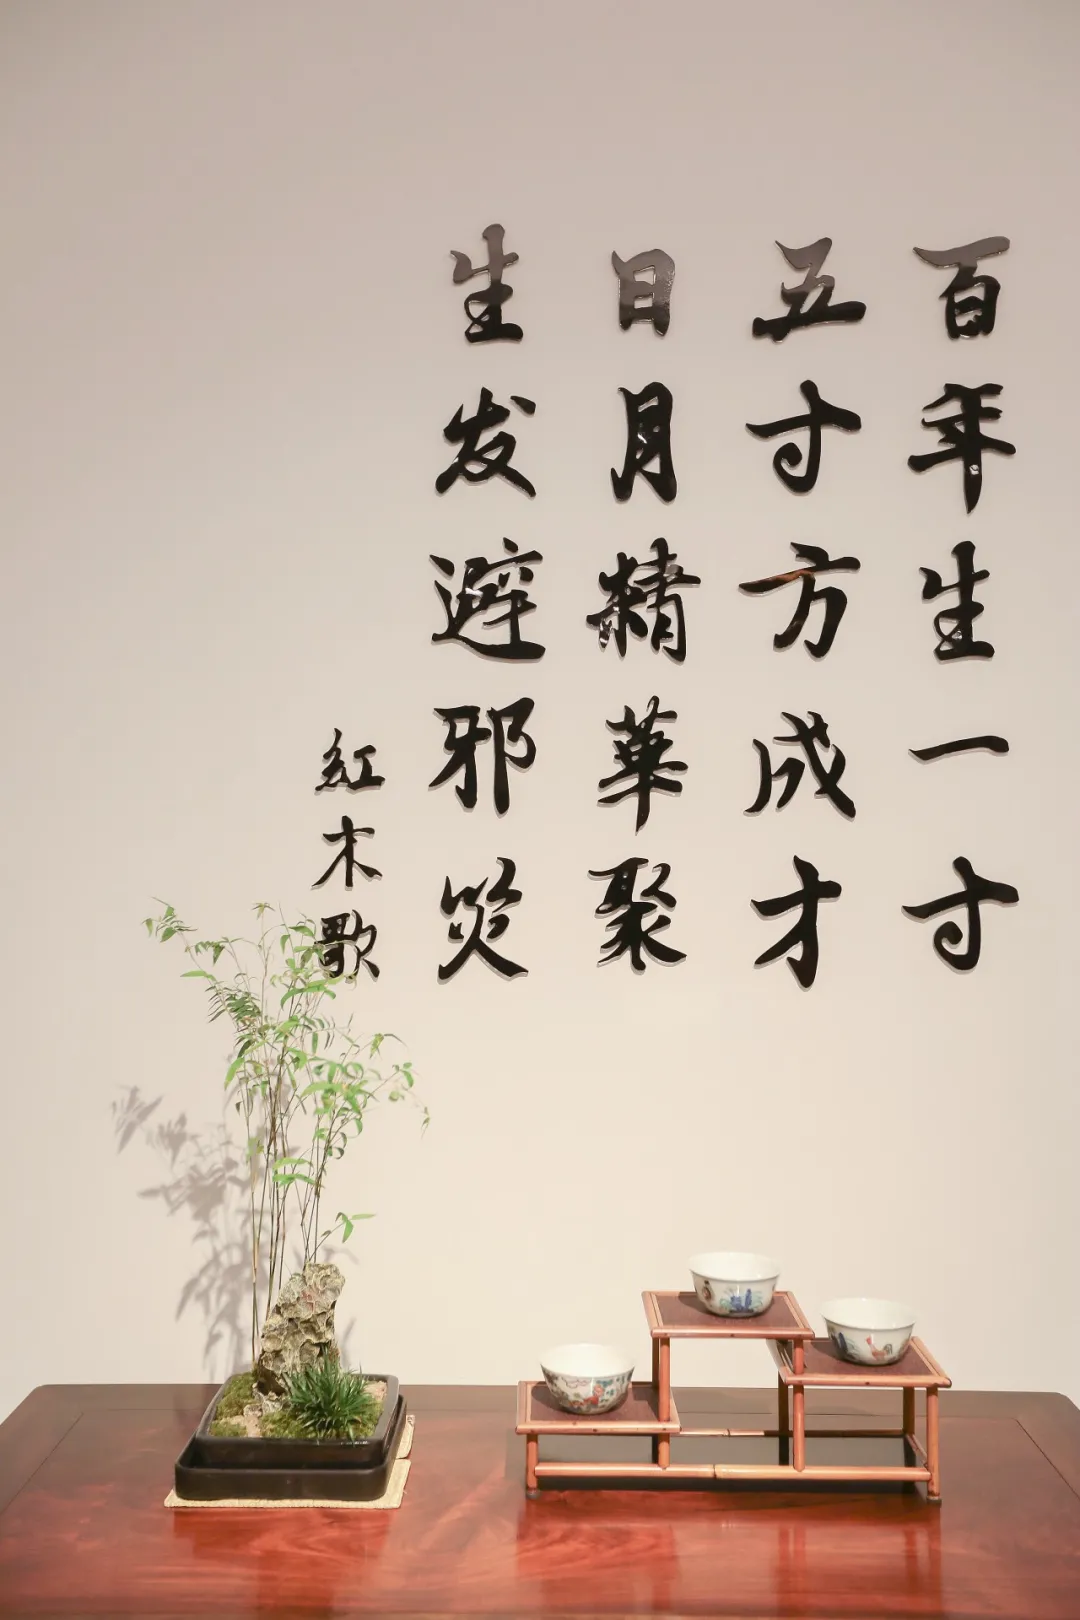 百年生一寸
五寸方成才
日月精華聚
生发避邪災
紅木歌